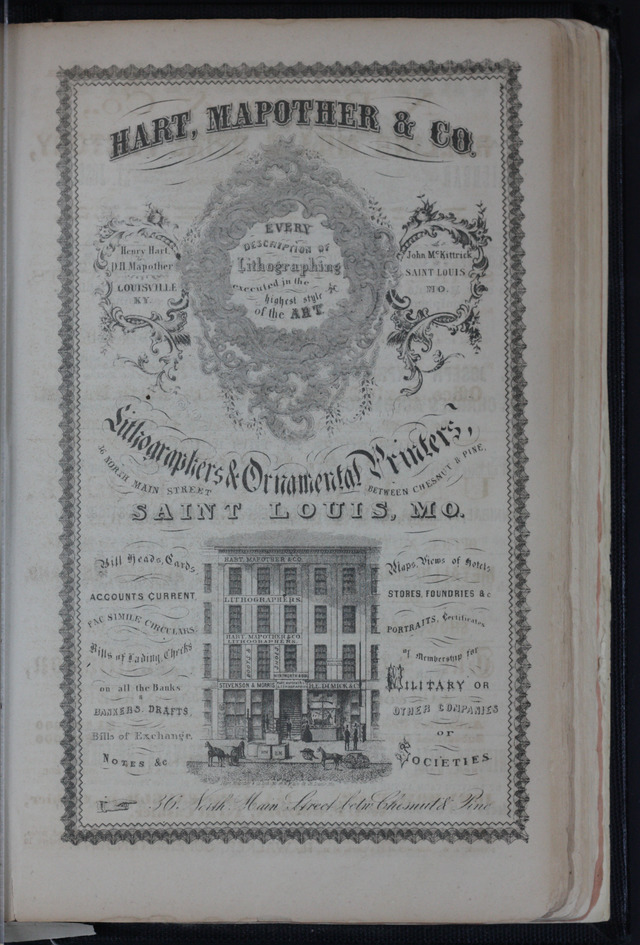 HART, MAPOTHER & CO.
EVERY
DESCRIPTION OF
Lithographing
executed in the
highest style
of the ART
Henry Hart.
D H Mapother
LOUISVILLE
KY.
John McKittrick
SAINT LOUIS
MO.
Lithographers & Ornamental Printers,
36 NORTH MAIN STREET
BETWEEN CHESNUT & PINE,
SAINT LOUIS, MO.
Bill Heads, Cards,
ACCOUNTS CURRENT
FAC SIMILE CIRCULARS
Bills of Lading, Checks
on all the Banks
BANKERS. DRAFTS,
Bills of Exchange.
NOTES &c
HART, MAPOTHER & CO.
LITHOGRAPHERS.
HART, MAPOTHER & CO.
LITHOGRAPHERS
STEVENSON & MORRIS
H.E. DIMICK & Co
Maps, Views of Hotels
STORES, FOUNDRIES &c
PORTRAITS, Certificates
of Membership for
MILITARY OR
OTHER COMPANIES
or
SOCIETIES
36. North Main Street betw Chesnut & Pine